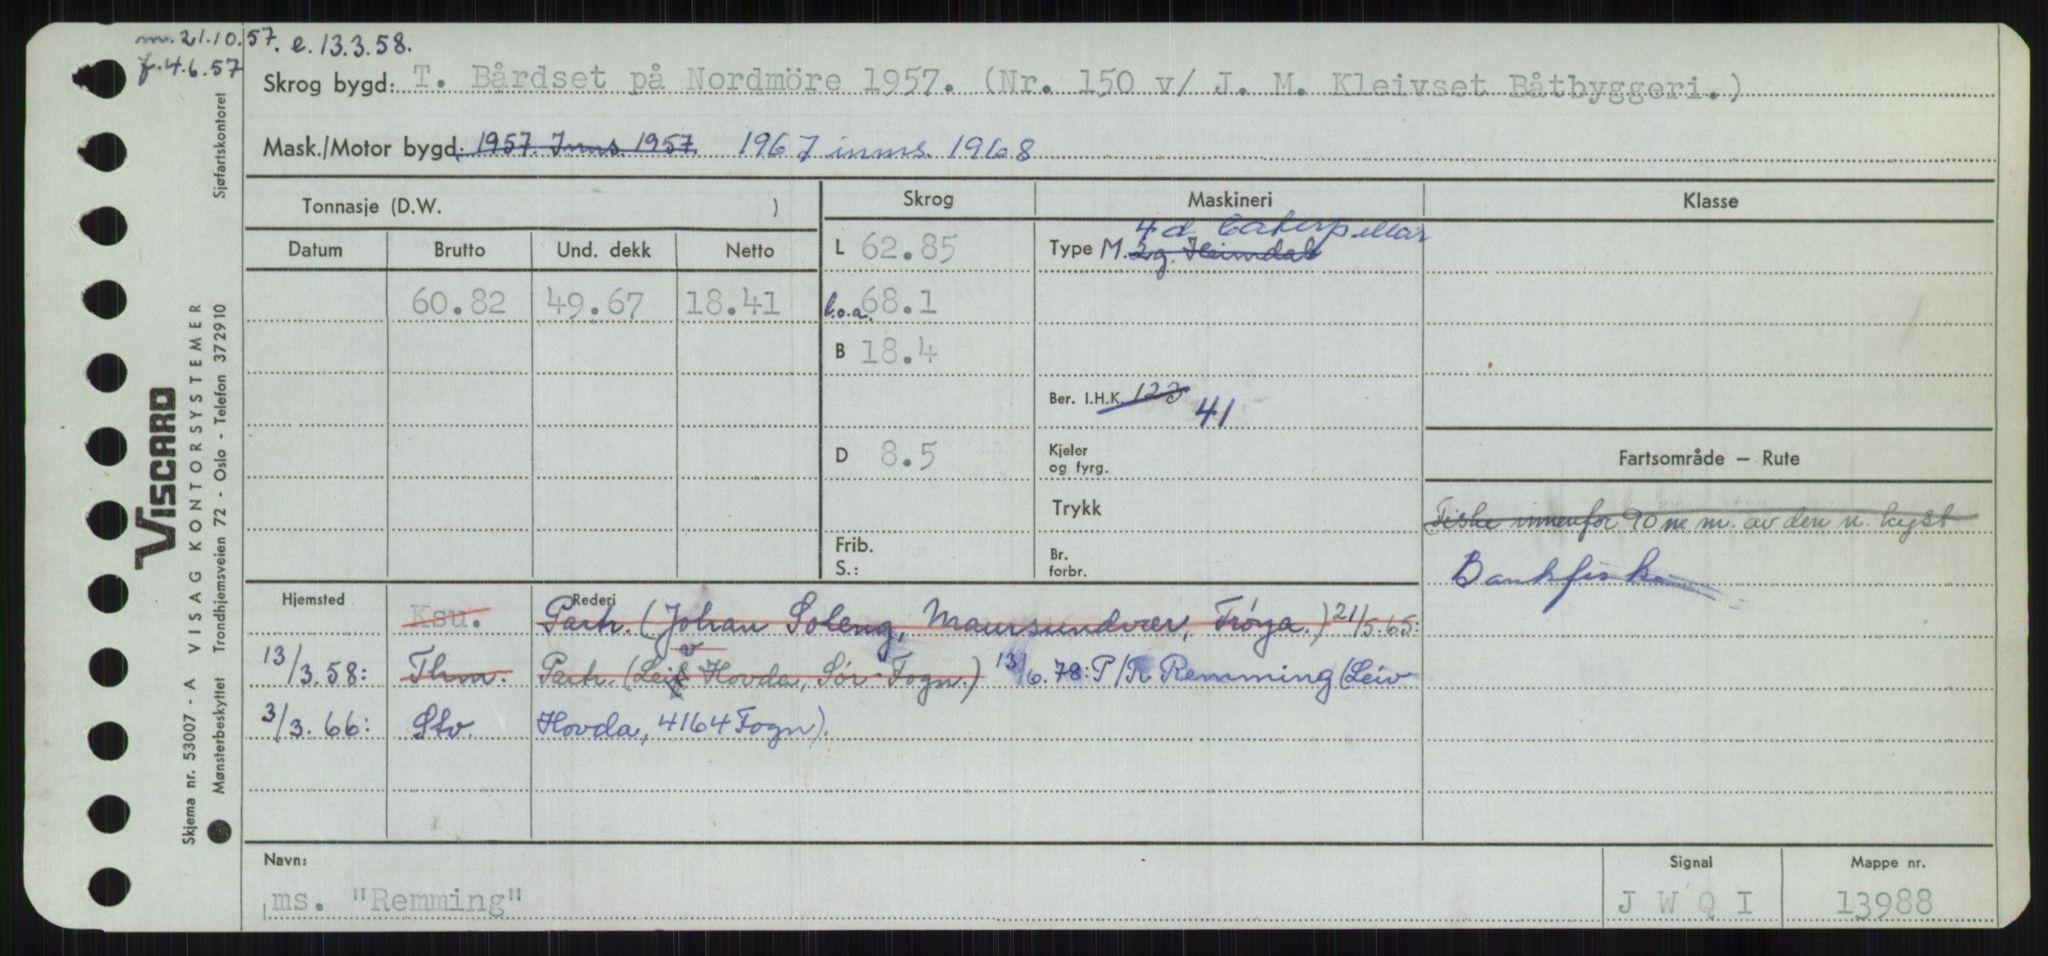 m. 21.10.57. e. 13.3.58.
f. 4.6.57
Skrog bygd: T. Bårdset på Nordmöre 1957. (Nr. 150 v/ J. M. Kleivset Båtbyggeri.)
Mask./Motor bygd: 1957. Inns. 1957. 1967 inns. 1968
Tonnasje (D.W. )
Skrog
Maskineri
Klasse
Datum Brutto Und. dekk Netto
L 62.85
Type M. 2g. Heimdal 4 d Caterpillar
60.82 49.67 18.41
l.o.a. 68.1
B 18.4
Ber. I.H.K. 123 41
D 8.5
Kjeler og fyrg.
Trykk
Frib. S.:
Br. forbr.
Fartsområde — Rute
Fiske innenfor 90 n. m. av den n. kyst
Bankfiske
Hjemsted
Rederi
Ksu. Partr. (Johan Soleng, Maursundvær, Frøya.) 21/5.65:
13/3.58: Thm. Partr. (Leiv Hovda, Sör-Fogn.) 13/6.78: P/R Remming (Leiv
3/3.66: Stv. Hovda, 4164 Fogn).
Navn:
ms. "Remming"
Signal
J W Q I
Mappe nr.
13988
VISCARD
Skjema nr. 53007 - A VISAG KONTORSYSTEMER
Mønsterbeskyttet Trondhjemsveien 72 - Oslo - Telefon 372910 Sjøfartskontoret